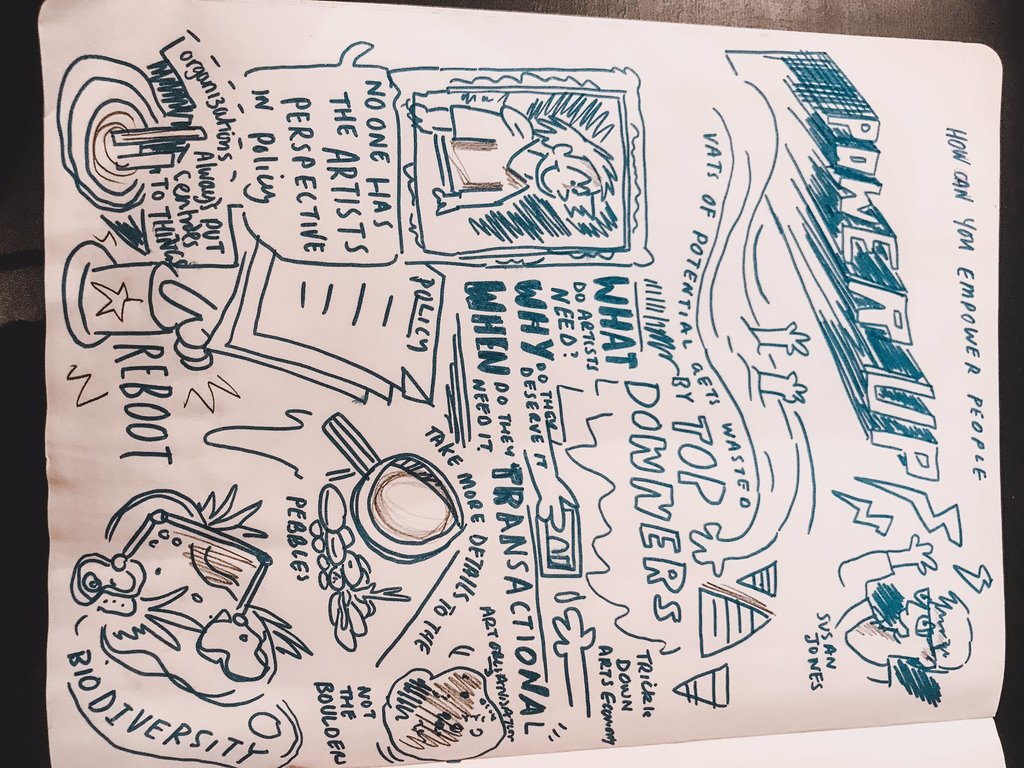 HOW CAN YOU EMPOWER PEOPLE
POWER UP
SUSAN
JONES
VATS OF POTENTIAL GETS WASTED
BY TOP
DOWNERS
TRICKLE
DOWN
ARTS ECONOMY
WHAT
DO ARTISTS
NEED?
WHY DO THEY
DESERVE IT
WHEN DO THEY
NEED IT
TRANSACTIONAL
NO ONE HAS
THE ARTISTS
PERSPECTIVE
IN POLICY
POLICY
TAKE MORE DETAILS TO THE
ART
PEBBLES
NOT
THE
BOULDER
organisation's
Always PUT
centres
TO THINGS
REBOOT
BIODIVERSITY